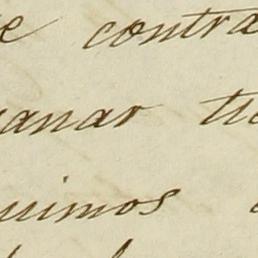 e contra
anar ti
uimos